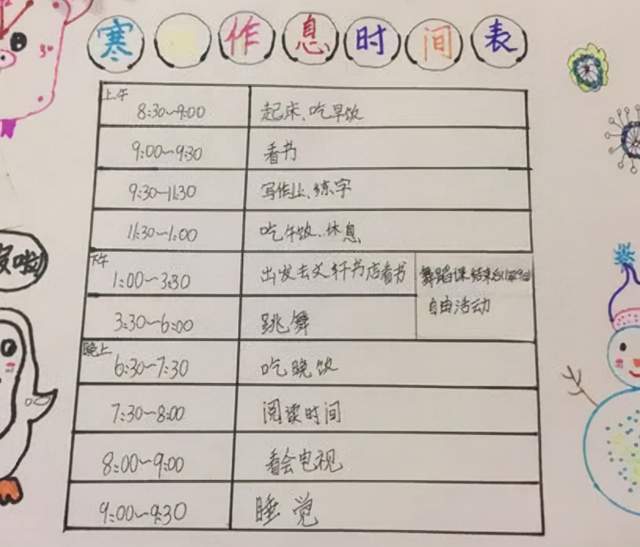 寒作息时间表
上午
8:30~9:00 起床、吃早饭
9:00~9:30 看书
9:30~11:30 写作业、练字
11:30~1:00 吃午饭、休息
下午
1:00~3:30 出发去文轩书店看书
舞蹈课结束
自由活动
3:30~6:00 跳舞
晚上
6:30~7:30 吃晚饭
7:30~8:00 阅读时间
8:00~9:00 看会电视
9:00~9:30 睡觉